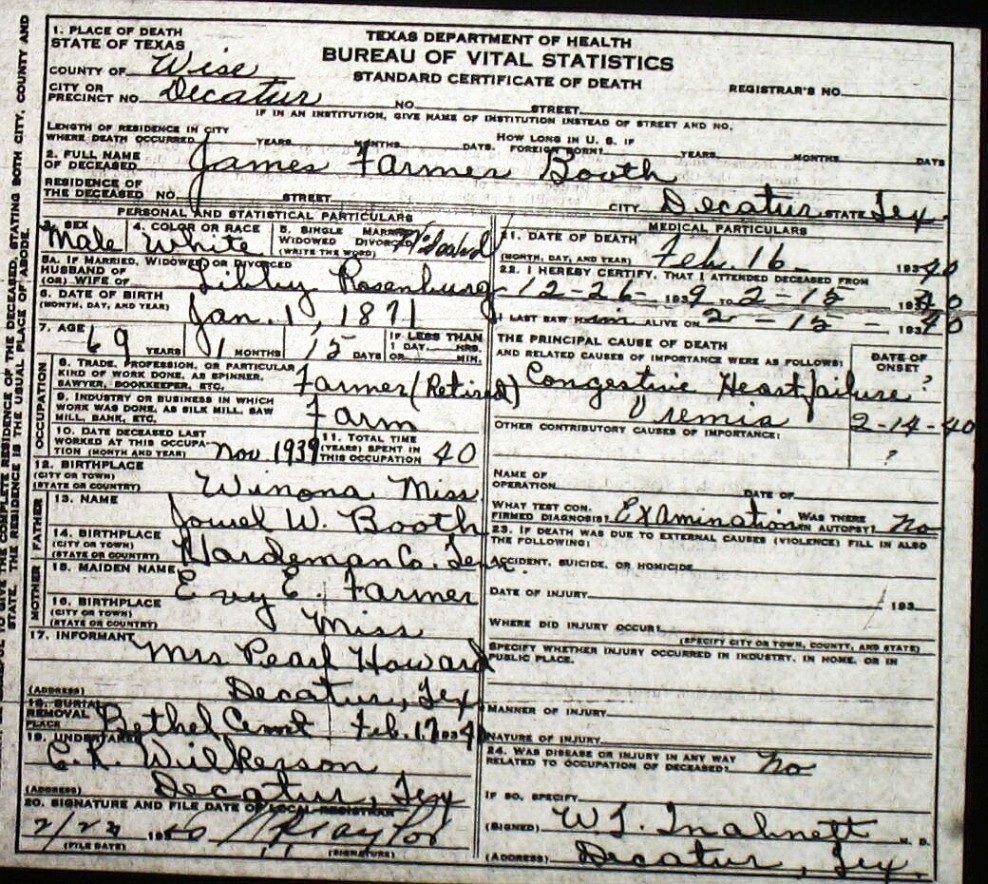 TEXAS DEPARTMENT OF HEALTH
BUREAU OF VITAL STATISTICS
STANDARD CERTIFICATE OF DEATH
1. PLACE OF DEATH
STATE OF TEXAS
COUNTY OF Wise
REGISTRAR'S NO.
CITY OR PRECINCT NO. Decatur NO. STREET
IF IN AN INSTITUTION, GIVE NAME OF INSTITUTION INSTEAD OF STREET AND NO.
LENGTH OF RESIDENCE IN CITY WHERE DEATH OCCURRED YEARS MONTHS DAYS HOW LONG IN U. S. IF FOREIGN BORN? YEARS MONTHS DAYS
2. FULL NAME OF DECEASED James Farmer Booth
RESIDENCE OF THE DECEASED NO. STREET CITY Decatur STATE Tex.
PERSONAL AND STATISTICAL PARTICULARS
3. SEX Male 4. COLOR OR RACE White 5. SINGLE MARRIED WIDOWED DIVORCED (WRITE THE WORD) Widowed
5A. IF MARRIED, WIDOWED OR DIVORCED
HUSBAND OF (OR) WIFE OF Libby Rosenburg
6. DATE OF BIRTH (MONTH, DAY, AND YEAR) Jan. 1, 1871
7. AGE 69 YEARS 1 MONTHS 15 DAYS IF LESS THAN 1 DAY HRS. OR MIN.
OCCUPATION
8. TRADE, PROFESSION, OR PARTICULAR KIND OF WORK DONE, AS SPINNER, SAWYER, BOOKKEEPER, ETC. Farmer (Retired)
9. INDUSTRY OR BUSINESS IN WHICH WORK WAS DONE, AS SILK MILL, SAW MILL, BANK, ETC. Farm
10. DATE DECEASED LAST WORKED AT THIS OCCUPATION (MONTH AND YEAR) Nov. 1939 11. TOTAL TIME (YEARS) SPENT IN THIS OCCUPATION 40
12. BIRTHPLACE (CITY OR TOWN) (STATE OR COUNTRY) Winona Miss.
FATHER
13. NAME W. Booth
14. BIRTHPLACE (CITY OR TOWN) (STATE OR COUNTRY) Hardeman Co. Tenn.
MOTHER
15. MAIDEN NAME E. Farmer
16. BIRTHPLACE (CITY OR TOWN) (STATE OR COUNTRY) Miss
17. INFORMANT Mrs Pearl Howard
(ADDRESS) Decatur, Tex
18. BURIAL REMOVAL PLACE Bethel Cemt Feb. 17 1940
19. UNDERTAKER E. R. Wilkerson
(ADDRESS) Decatur, Tex
20. SIGNATURE AND FILE DATE OF LOCAL REGISTRAR
1940
(FILE DATE) (SIGNATURE)
MEDICAL PARTICULARS
21. DATE OF DEATH (MONTH, DAY, AND YEAR) Feb. 16 - 19340
22. I HEREBY CERTIFY, THAT I ATTENDED DECEASED FROM
12-26- 1939 TO 2-15 19340
I LAST SAW him ALIVE ON 2-15- 19340
THE PRINCIPAL CAUSE OF DEATH AND RELATED CAUSES OF IMPORTANCE WERE AS FOLLOWS: DATE OF ONSET
Congestive Heart failure ?
Uremia 2-14-40
OTHER CONTRIBUTORY CAUSES OF IMPORTANCE:
?
NAME OF OPERATION DATE OF
WHAT TEST CONFIRMED DIAGNOSIS? Examination WAS THERE AN AUTOPSY? No
23. IF DEATH WAS DUE TO EXTERNAL CAUSES (VIOLENCE) FILL IN ALSO THE FOLLOWING:
ACCIDENT, SUICIDE, OR HOMICIDE
DATE OF INJURY 193
WHERE DID INJURY OCCUR?
(SPECIFY CITY OR TOWN, COUNTY, AND STATE)
SPECIFY WHETHER INJURY OCCURRED IN INDUSTRY, IN HOME, OR IN PUBLIC PLACE.
MANNER OF INJURY
NATURE OF INJURY
24. WAS DISEASE OR INJURY IN ANY WAY RELATED TO OCCUPATION OF DECEASED? No
IF SO, SPECIFY
(SIGNED) M. D.
(ADDRESS) Decatur, Tex.
GIVE THE COMPLETE RESIDENCE OF THE DECEASED, STATING BOTH CITY, COUNTY AND
STATE. THE RESIDENCE IS THE USUAL PLACE OF ABODE.